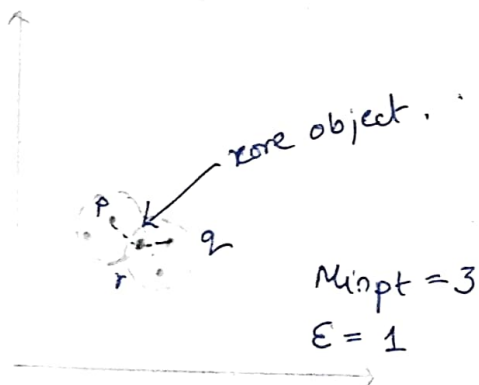 core object.
p
q
r
Minpt = 3
ε = 1